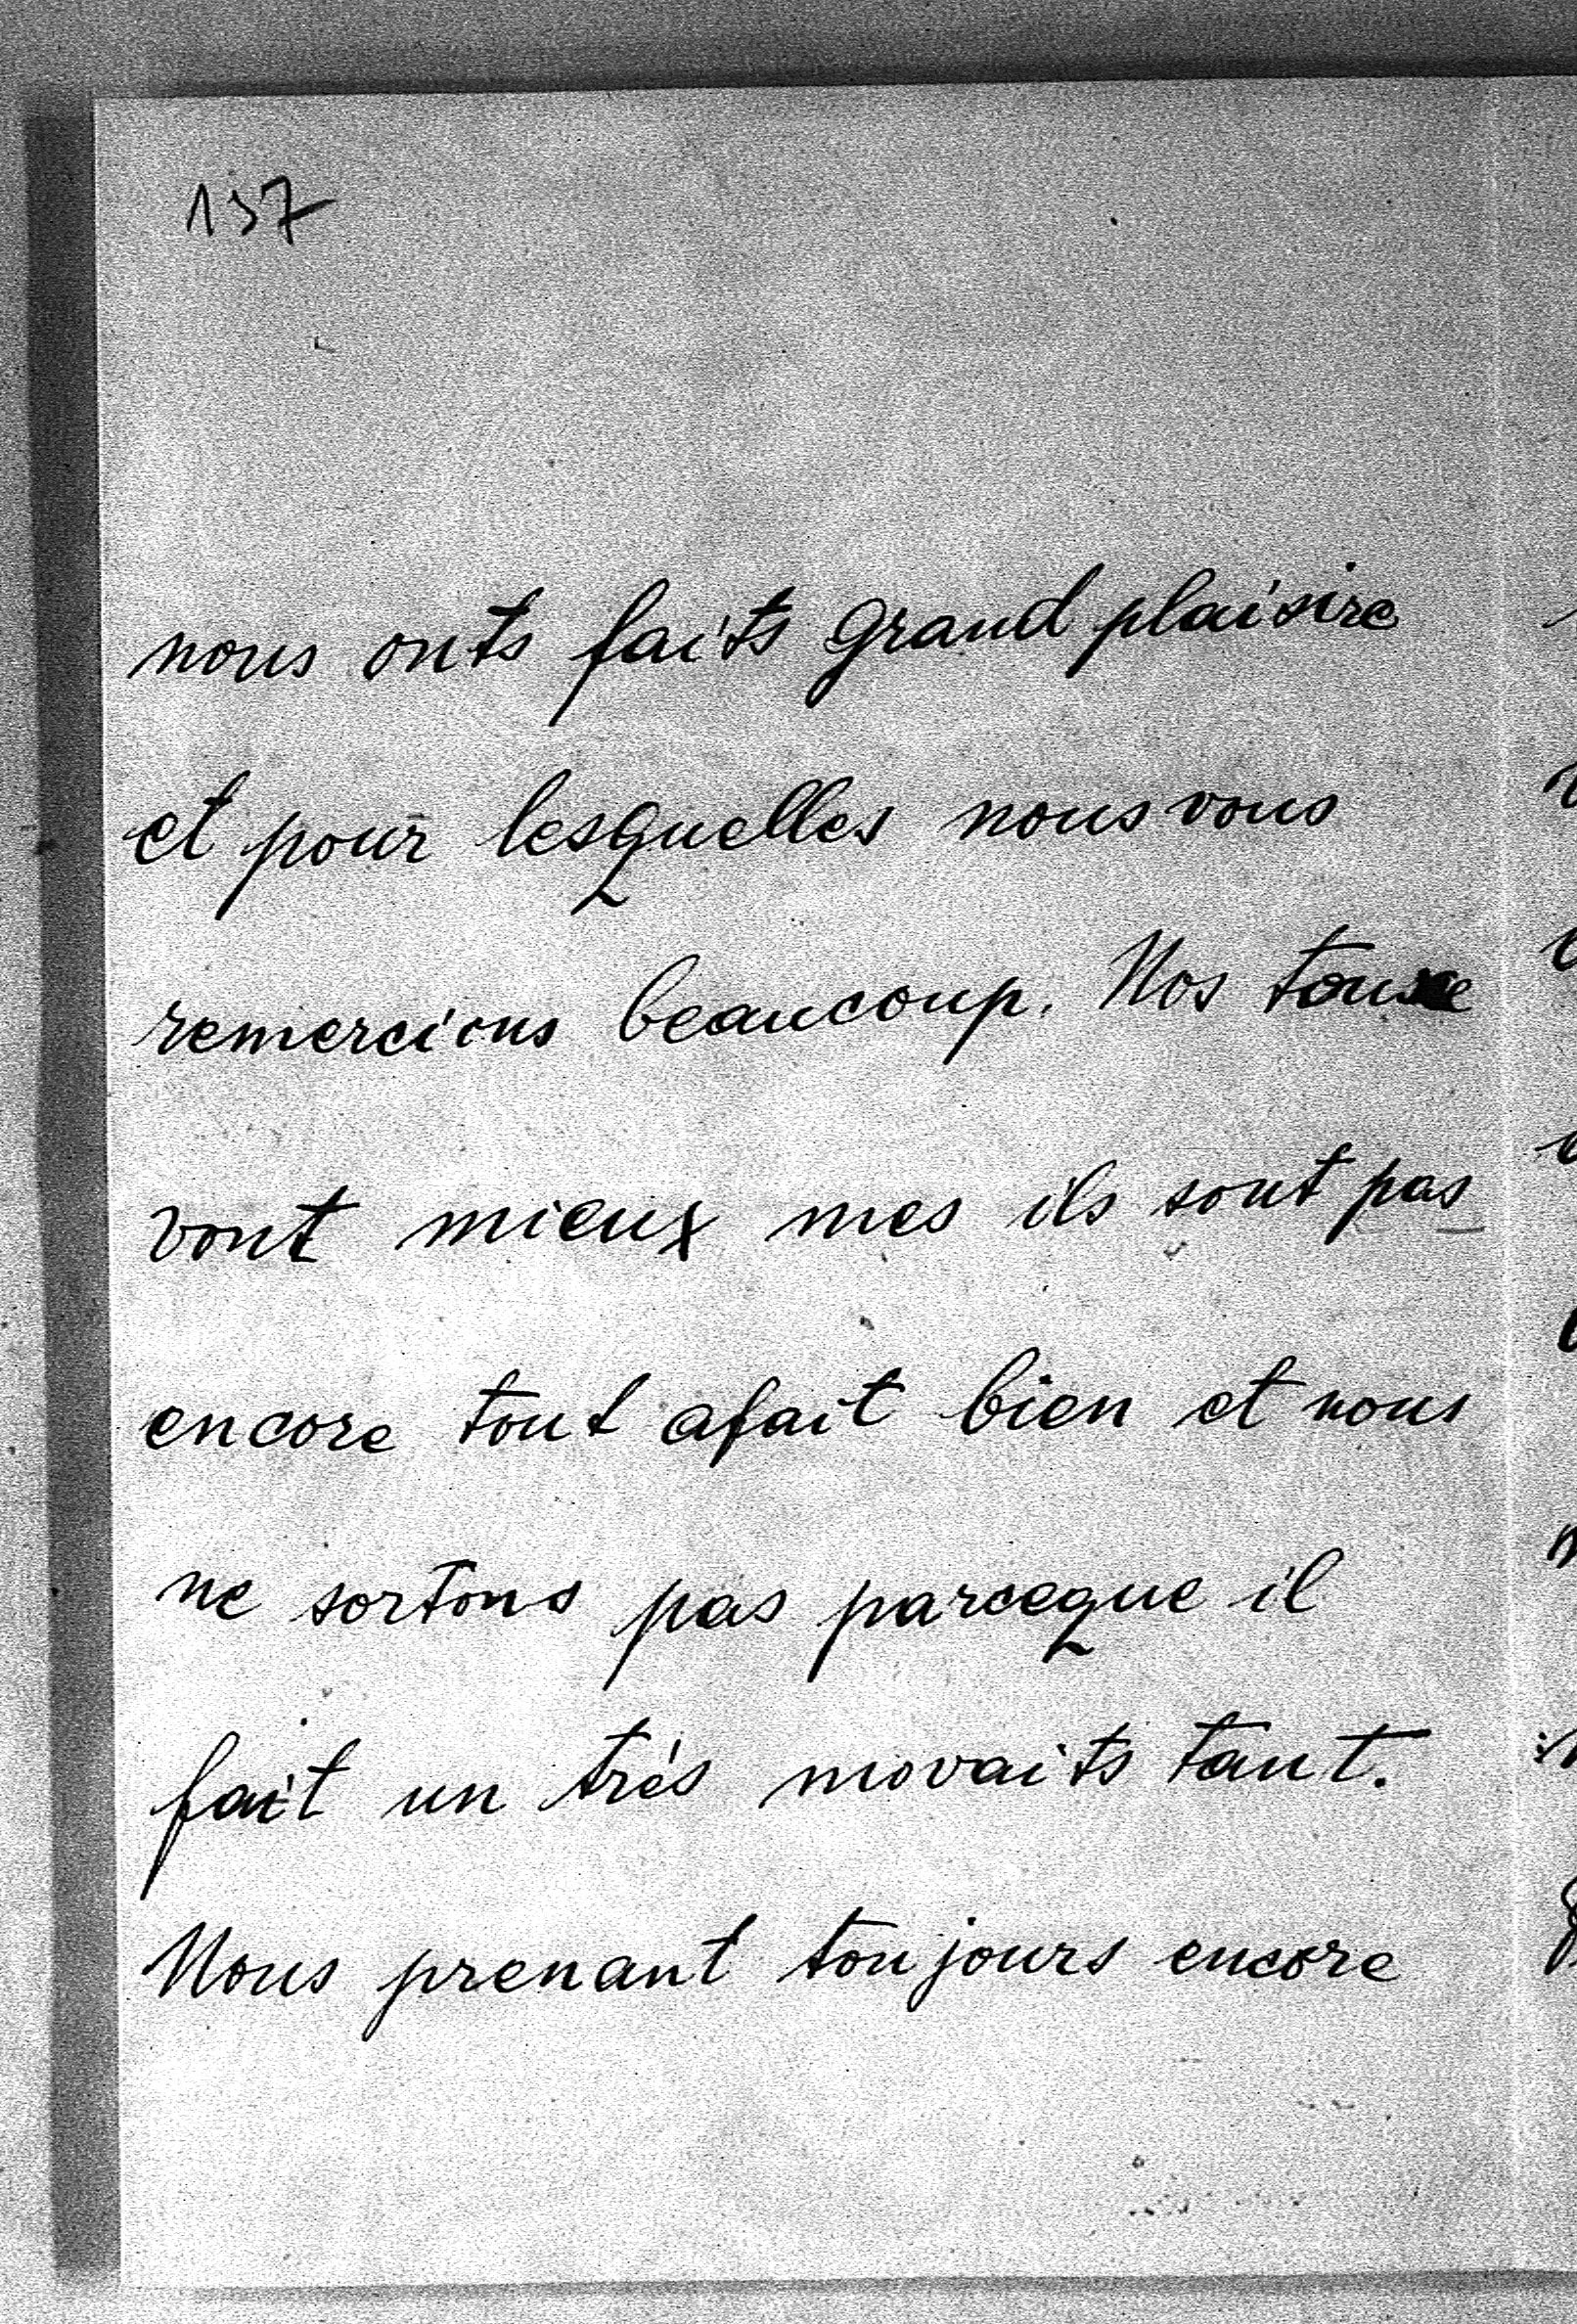 137
nous onts faits grand plaisire
et pour lesquelles nous vous
remercions beaucoup. Nos touxe
vont mieux mes ils sont pas
encore tout afait bien et nous
ne sortons pas parceque il
fait un trés movaits tant.
Nous prenant toujours encore